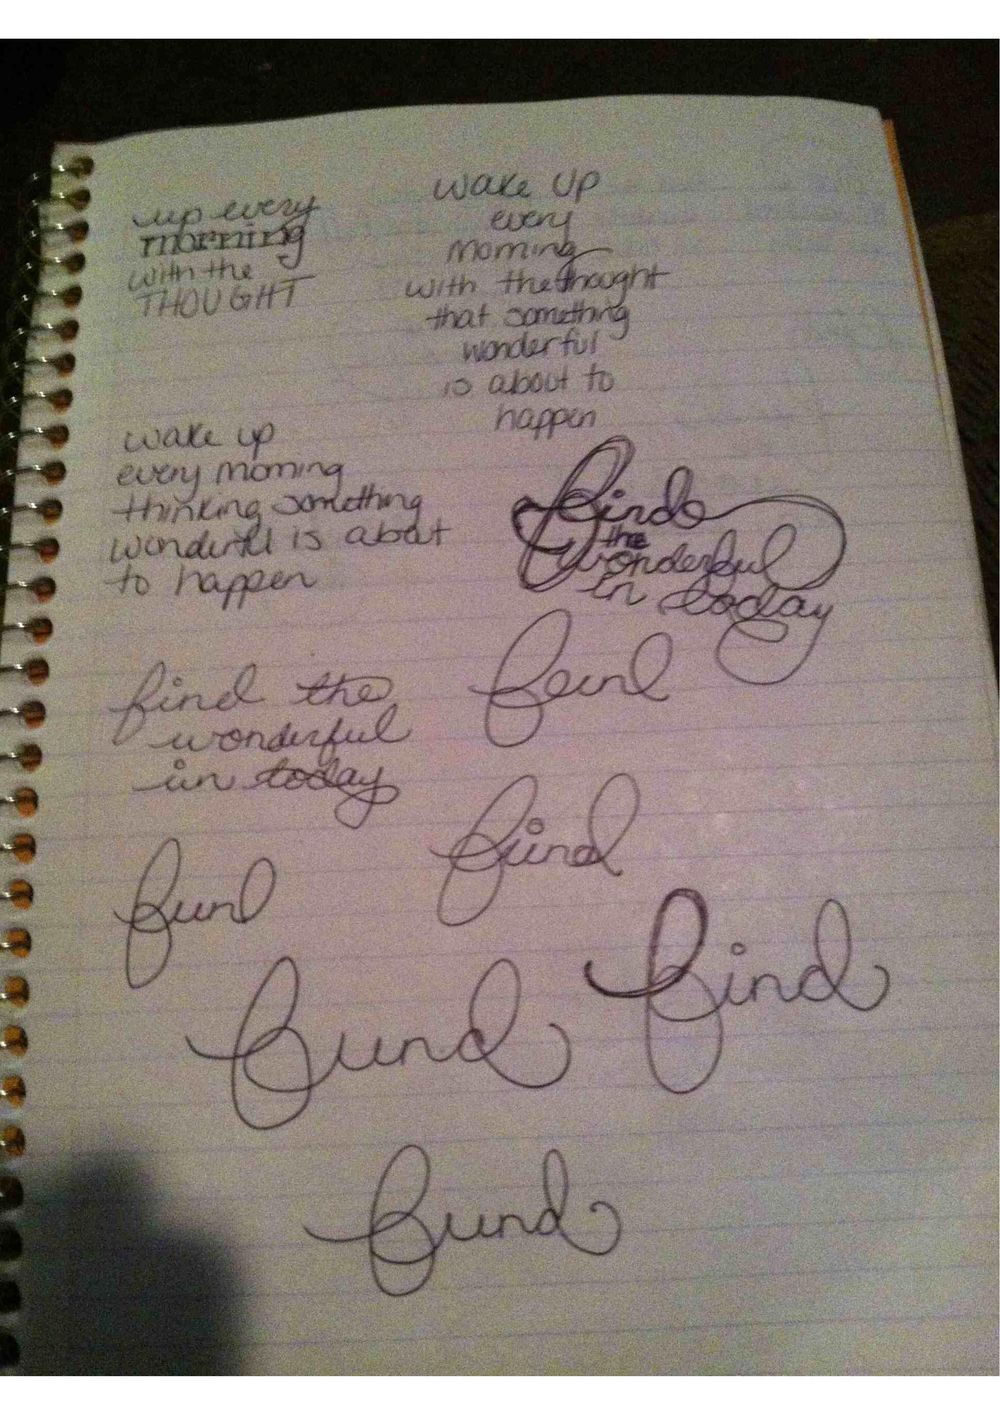 up every
morning
with the
THOUGHT
wake up
every
morning
with the thought
that something
wonderful
is about to
happen
wake up
every morning
thinking something
wonderful is about
to happen
find
the
wonderful
in today
find the
wonderful
in today
find
find
find
find
find
find